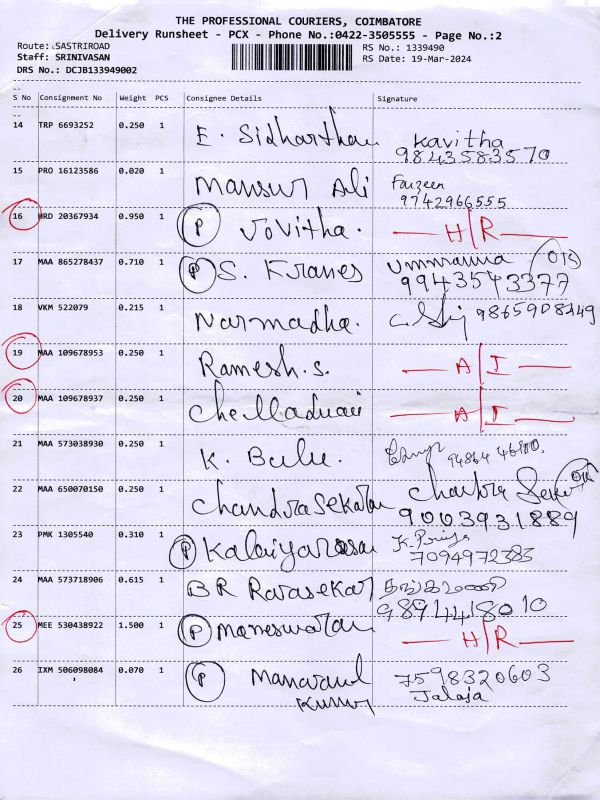 THE PROFESSIONAL COURIERS, COIMBATORE
Delivery Runsheet - PCX - Phone No.:0422-3505555 - Page No.:2
Route: SASTRIROAD RS No.: 1339490
Staff: SRINIVASAN RS Date: 19-Mar-2024
DRS No.: DCJB133949002
S No Consignment No Weight PCS Consignee Details Signature
14 TRP 6693252 0.250 1 E. Sidharthan Kavitha
9843583570
15 PRO 16123586 0.020 1 Mansur Ali Farzeen
9742966555
16 HRD 20367934 0.950 1 P Jovitha. H/R
17 MAA 865278437 0.710 1 P S. Kranes Ummama
9943543377
18 VKM 522079 0.215 1 Narmadha.
19 MAA 109678953 0.250 1 Ramesh.s. A/I
20 MAA 109678937 0.250 1 Chelladuai A/I
21 MAA 573038930 0.250 1 K. Balu.
22 MAA 650070150 0.250 1 Chandrasekaran
9003931889
23 PMK 1305540 0.310 1 P Kalaiyarasan K. Priya
7094972383
24 MAA 573718906 0.615 1 BR Ravasekar
9894418010
25 MEE 530438922 1.500 1 P Maneswaran H/R
26 IXM 506098084 0.070 1 P 7598320603
Kumar Jalaja